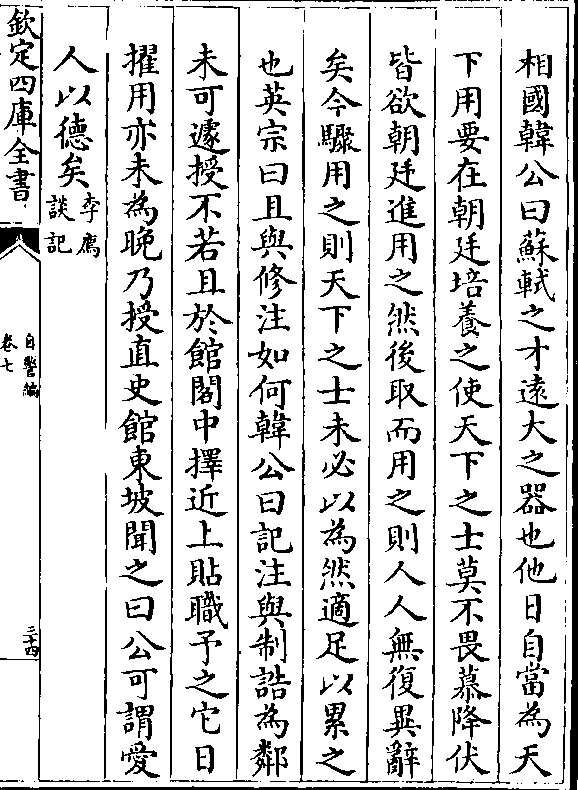 相國韓公曰蘇軾之才遠大之器也他日自當為天
下用要在朝廷培養之使天下之士莫不畏慕降伏
皆欲朝廷進用之然後取而用之則人人無復異辭
矣今驟用之則天下之士未必以為然適足以累之
也英宗曰且與修注如何韓公曰記注與制誥為鄰
未可遽授不若且於館閣中擇近上貼職予之它日
擢用亦未為晚乃授直史館東坡聞之曰公可謂愛
人以德矣李廌
談記
欽定四庫全書
自警編
卷七
三十四